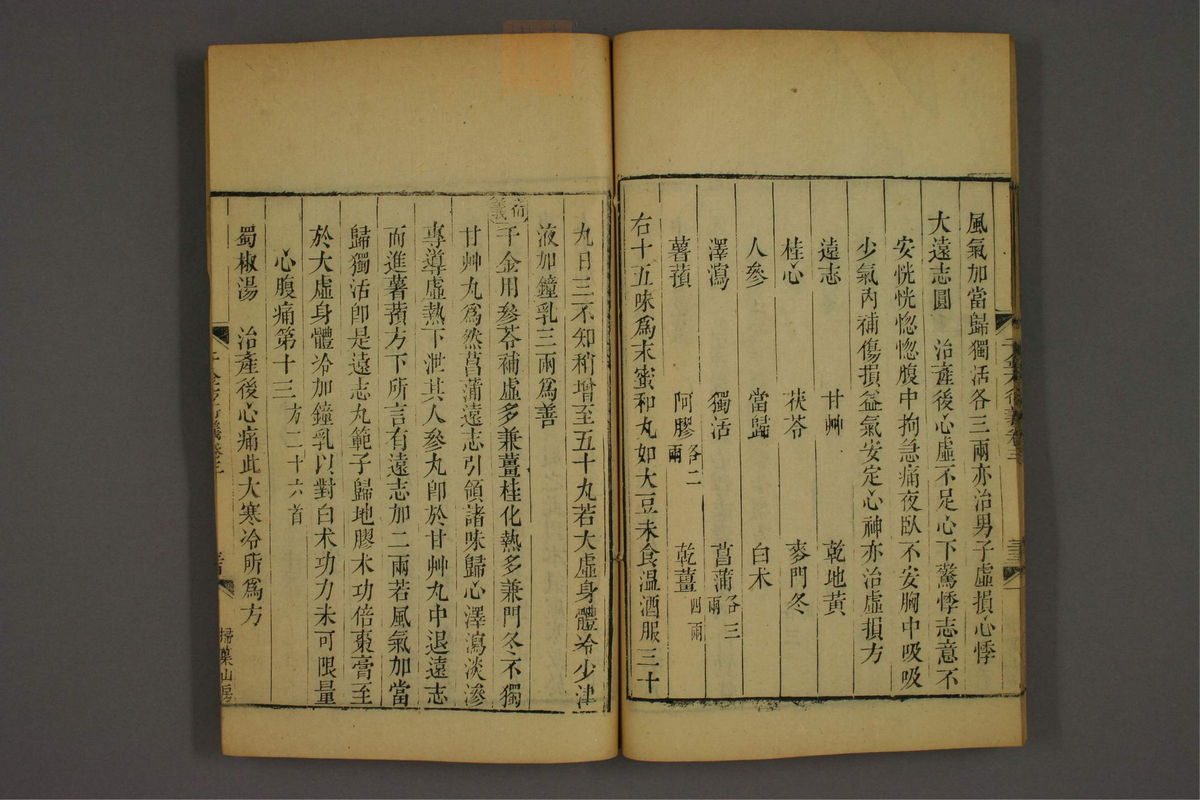 風氣加當歸獨活各三兩亦治男子虛損心悸
大遠志圓　治產後心虛不足心下驚悸志意不
安恍恍惚惚腹中拘急痛夜臥不安胸中吸吸
少氣內補傷損益氣安定心神亦治虛損方
遠志　甘艸　乾地黃
桂心　茯苓　麥門冬
人參　當歸　白朮
澤瀉　獨活　菖蒲各三兩
薯蕷　阿膠各二兩　乾薑四兩
右十五味爲末蜜和丸如大豆未食溫酒服三十
丸日三不知稍增至五十丸若大虛身體冷少津
液加鐘乳三兩爲善
衍義
千金用參苓補虛多兼薑桂化熱多兼門冬不獨
甘艸丸爲然菖蒲遠志引領諸味歸心澤瀉淡滲
專導虛熱下泄其人參丸卽於甘艸丸中退遠志
而進薯蕷方下所言有遠志加二兩若風氣加當
歸獨活卽是遠志丸範子歸地膠朮功倍棗膏至
於大虛身體冷加鐘乳以對白朮功力未可限量
心腹痛第十三方二十六首
蜀椒湯　治產後心痛此大寒冷所爲方
掃葉山房